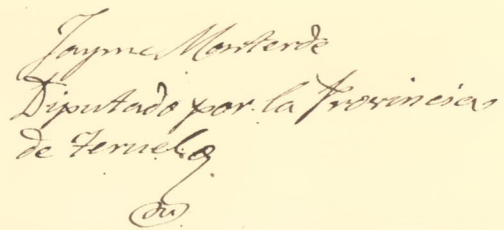 Jayme Monterde
Diputado por la Provincia
de Teruel